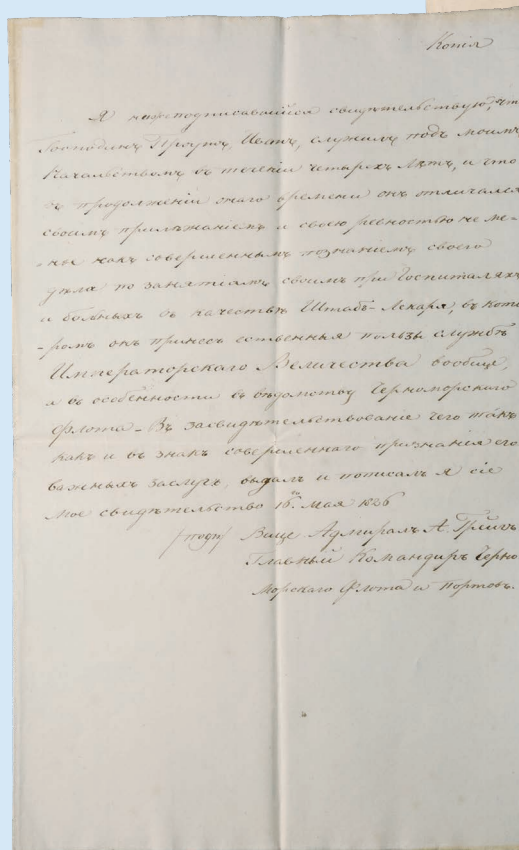 Копія
Я нижеподписавшійся свидѣтельствую, что
Господинъ Иванъ, служилъ подъ моимъ
Начальствомъ въ теченіи четырехъ лѣтъ, и что
въ продолженіи онаго времени онъ отличался
своимъ прилѣжаніемъ и своею ревностью не ме-
-нѣе какъ совершеннымъ познаніемъ своего
дѣла по занятіямъ своимъ при Госпиталяхъ
и больныхъ въ качествѣ Штабъ-Лекаря, въ кото
-ромъ онъ принесъ пользы службѣ
Императорскаго Величества вообще,
а въ особенности вѣдомству Черноморскаго
Флота - Въ засвидѣтельствованіе чего такъ
какъ и въ знакъ совершеннаго признанія его
важныхъ заслугъ, выдалъ и пописалъ я сіе
мое свидѣтельство 16го Мая 1826
/подп/ Вице Адмиралъ А. Грейгъ
Главный Командиръ Черно
Морскаго Флота и портовъ.